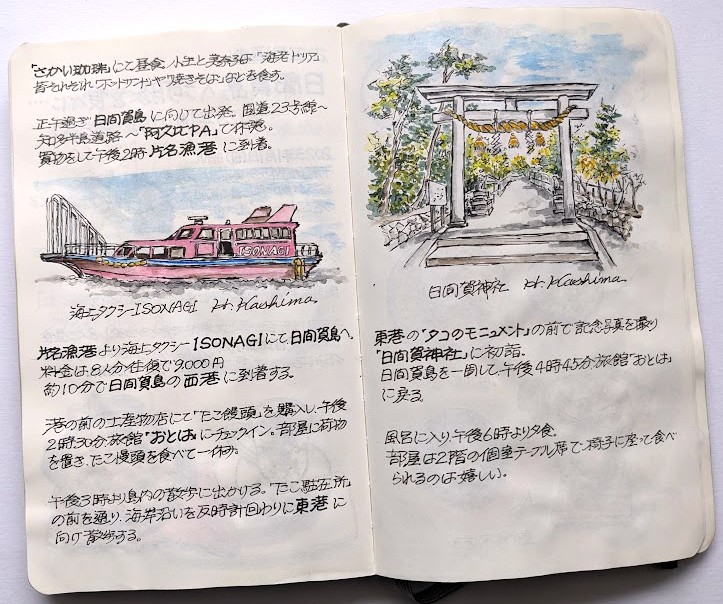 「さかい珈琲」にて昼食。小生と美奈子は「海老ドリア」
皆それぞれ「ホットサンド」や「焼きそば」などを食す。
正午過ぎ日間賀島に向けて出発。国道23号線~
知多半島道路~「阿久比PA」で休憩。
買物をして午後2時片名漁港に到着。
ISONAGI
海上タクシーISONAGI H.Kashima
片名漁港より海上タクシーISONAGIにて日間賀島へ。
料金は8人分往復で9,000円
約10分で日間賀島の西港に到着する。
港の前の土産物店にて「たこ饅頭」を購入し、午後
2時30分旅館"おとは"にチェックイン。部屋に荷物
を置き、たこ饅頭を食べて一休み。
午後3時より島内の散歩に出かける。「たこ駐在所」
の前を通り、海岸沿いを反時計回りに東港に
向け散歩する。
日間賀神社 H.Kashima
東港の「タコのモニュメント」の前で記念写真を撮り
「日間賀神社」に初詣。
日間賀島を一周して午後4時45分旅館"おとは"
に戻る。
風呂に入り、午後6時より夕食。
部屋は2階の個室テーブル席で、椅子に座って食べ
られるのは嬉しい。